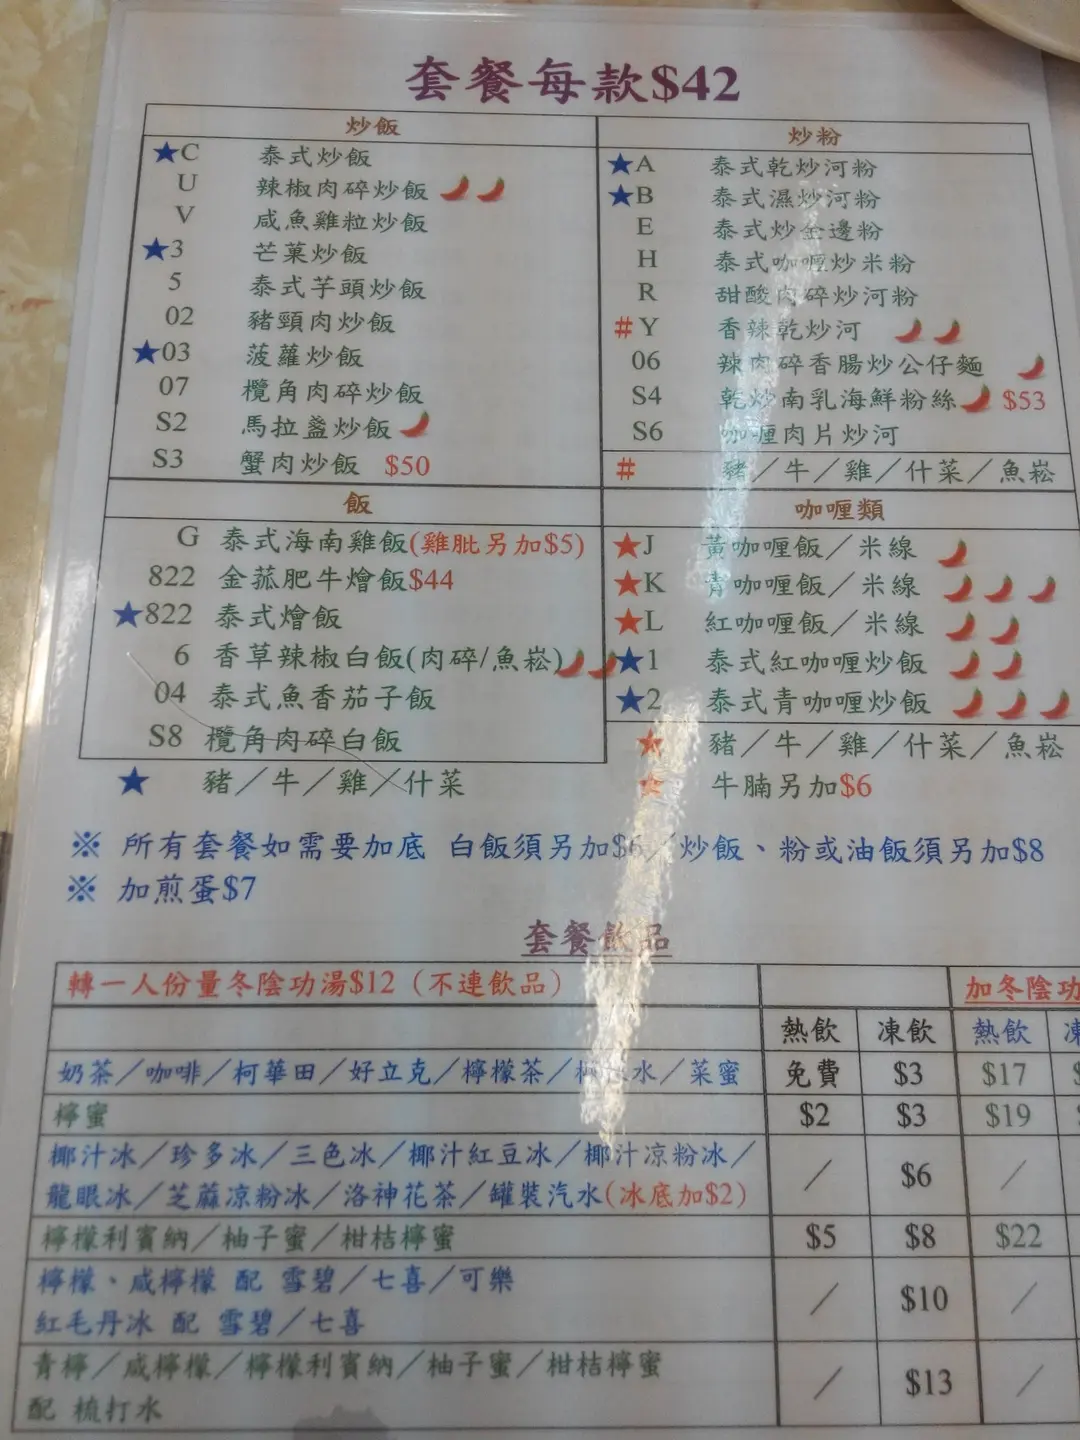 套餐每款$42
炒飯
★C 泰式炒飯
U 辣椒肉碎炒飯
V 咸魚雞粒炒飯
★3 芒菓炒飯
5 泰式芋頭炒飯
02 豬頸肉炒飯
★03 菠蘿炒飯
07 欖角肉碎炒飯
S2 馬拉盞炒飯
S3 蟹肉炒飯 $50
炒粉
★A 泰式乾炒河粉
★B 泰式濕炒河粉
E 泰式炒金邊粉
H 泰式咖喱炒米粉
R 甜酸肉碎炒河粉
#Y 香辣乾炒河
06 辣肉碎香腸炒公仔麵
S4 乾炒南乳海鮮粉絲 $53
S6 咖喱肉片炒河
# 豬／牛／雞／什菜／魚崧
飯
G 泰式海南雞飯(雞肶另加$5)
822 金菇肥牛燴飯$44
★822 泰式燴飯
6 香草辣椒白飯(肉碎/魚崧)
04 泰式魚香茄子飯
S8 欖角肉碎白飯
★ 豬／牛／雞／什菜
咖喱類
★J 黃咖喱飯／米線
★K 青咖喱飯／米線
★L 紅咖喱飯／米線
★1 泰式紅咖喱炒飯
★2 泰式青咖喱炒飯
★ 豬／牛／雞／什菜／魚崧
★ 牛腩另加$6
※ 所有套餐如需要加底 白飯須另加$6／炒飯、粉或油飯須另加$8
※ 加煎蛋$7
套餐飲品
轉一人份量冬陰功湯$12（不連飲品） 加冬陰功
熱飲 凍飲 熱飲
奶茶／咖啡／柯華田／好立克／檸檬茶／檸 水／菜蜜 免費 $3 $17
檸蜜 $2 $3 $19
椰汁冰／珍多冰／三色冰／椰汁紅豆冰／椰汁凉粉冰／
龍眼冰／芝蔴凉粉冰／洛神花茶／罐裝汽水(冰底加$2) ／ $6 ／
檸檬利賓納／柚子蜜／柑桔檸蜜 $5 $8 $22
檸檬、咸檸檬 配 雪碧／七喜／可樂
紅毛丹冰 配 雪碧／七喜 ／ $10 ／
青檸／咸檸檬／檸檬利賓納／柚子蜜／柑桔檸蜜
配 梳打水 ／ $13 ／